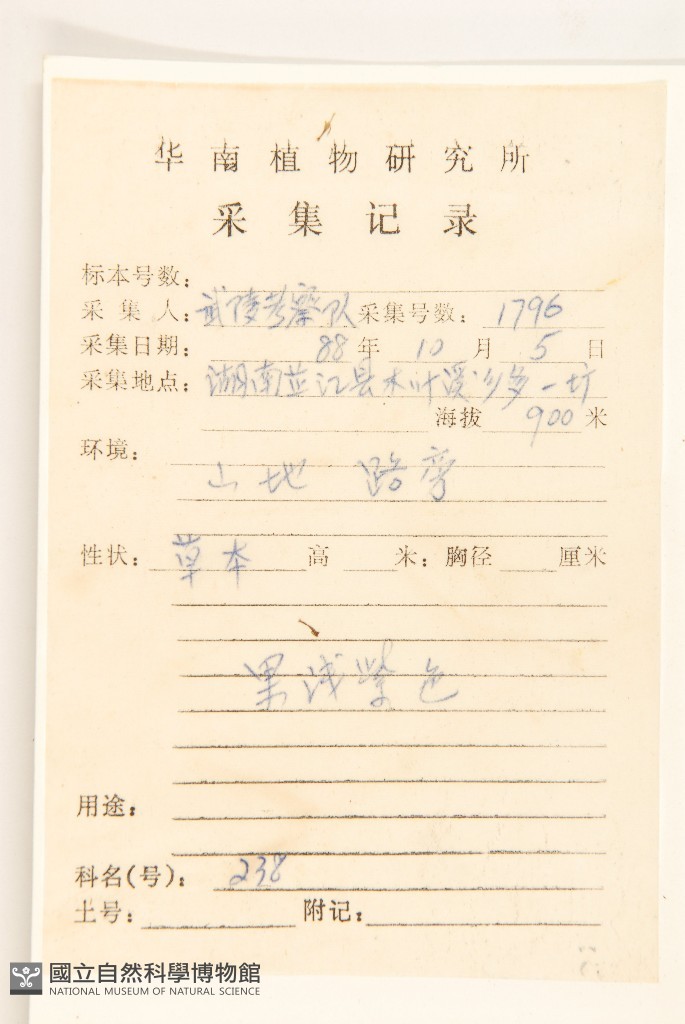 华南植物研究所
采集记录
标本号数:
采集人: 武陵考察队 采集号数: 1796
采集日期: 88 年 10 月 5 日
采集地点: 湖南芷江县木叶溪
海拔 900 米
环境:
山地 路旁
性状: 草本 高 米: 胸径 厘米
果浅紫色
用途:
科名(号): 238
土号: 附记:
國立自然科學博物館
NATIONAL MUSEUM OF NATURAL SCIENCE